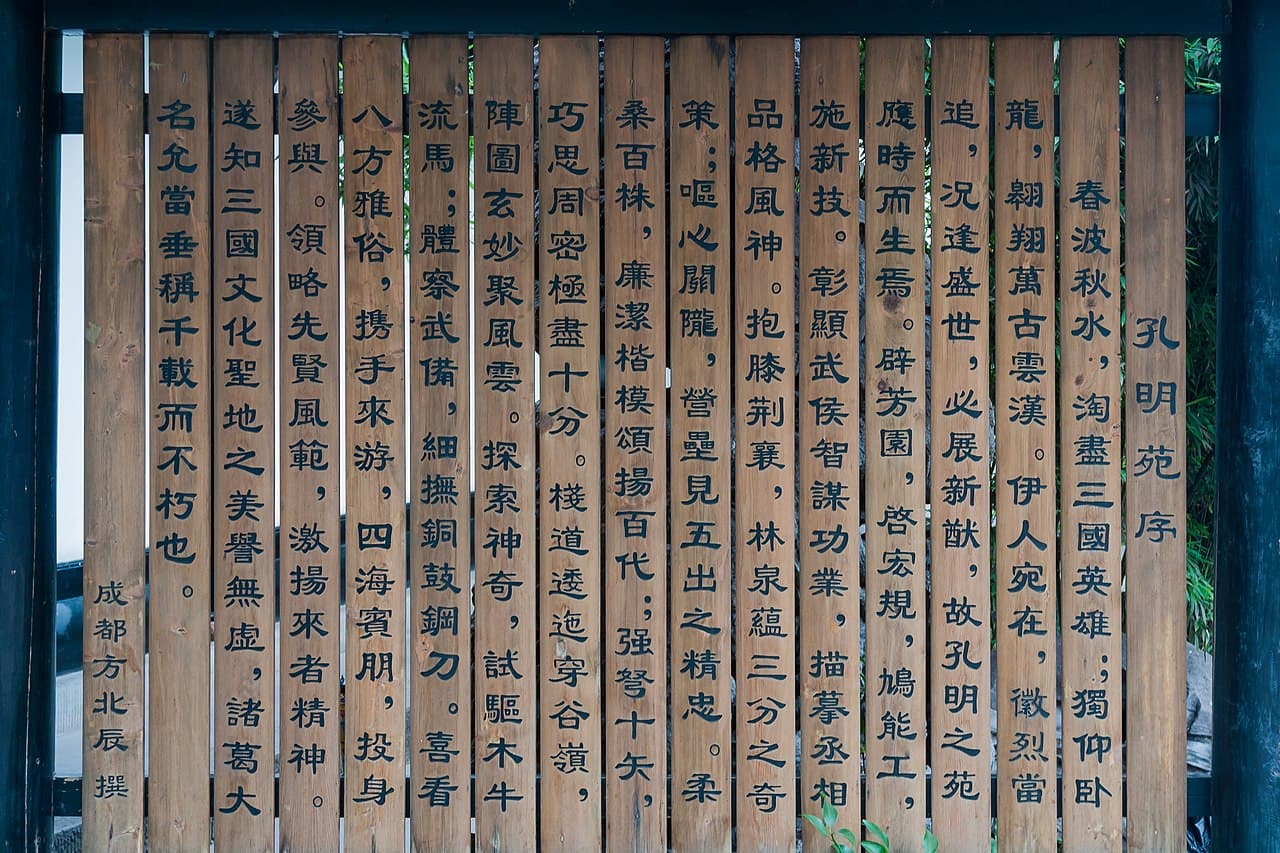 孔明苑序
春波秋水，淘盡三國英雄；獨仰卧
龍，翱翔萬古雲漢。伊人宛在，徽烈當
追，況逢盛世，必展新猷，故孔明之苑
應時而生焉。辟芳園，啓宏規，鳩能工，
施新技。彰顯武侯智謀功業，描摹丞相
品格風神。抱膝荆襄，林泉蘊三分之奇
策；嘔心關隴，營壘見五出之精忠。柔
桑百株，廉潔楷模頌揚百代；强弩十矢，
巧思周密極盡十分。棧道逶迤穿谷嶺，
陣圖玄妙聚風雲。探索神奇，試驅木牛
流馬；體察武備，細撫銅鼓鋼刀。喜看
八方雅俗，携手來游，四海賓朋，投身
參與。領略先賢風範，激揚來者精神。
遂知三國文化聖地之美譽無虛，諸葛大
名允當垂稱千載而不朽也。
成都方北辰 撰